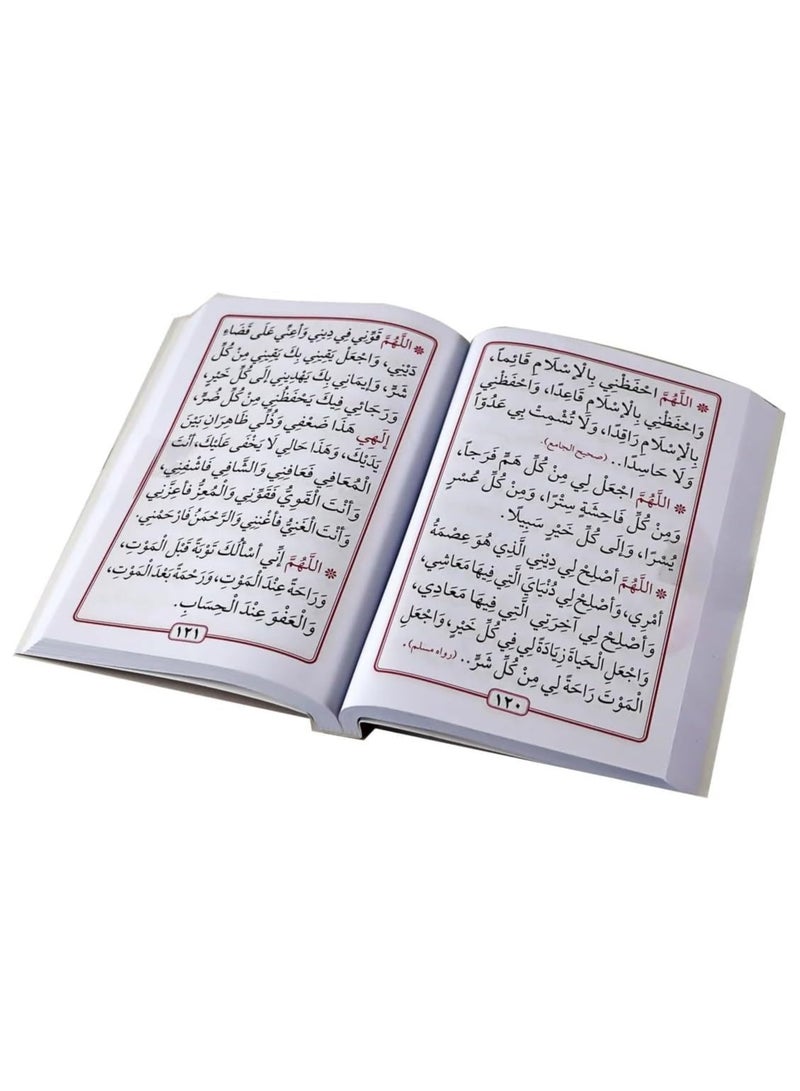 ❊ اللَّهُمَّ احْفَظْنِي بِالْإِسْلَامِ قَائِماً،
وَاحْفَظْنِي بِالْإِسْلَامِ قَاعِدًا، وَاحْفَظْنِي
بِالْإِسْلَامِ رَاقِدًا، وَلَا تُشْمِتْ بِي عَدُوًّا
وَلَا حَاسِدًا.. (صحيح الجامع).
❊ اللَّهُمَّ اجْعَلْ لِي مِنْ كُلِّ هَمٍّ فَرَجاً،
وَمِنْ كُلِّ فَاحِشَةٍ سِتْرًا، وَمِنْ كُلِّ عُسْرٍ
يُسْرًا، وَإِلَى كُلِّ خَيْرٍ سَبِيلًا.
❊ اللَّهُمَّ أَصْلِحْ لِي دِيْنِي الَّذِي هُوَ عِصْمَةُ
أَمْرِي، وَأَصْلِحْ لِي دُنْيَايَ الَّتِي فِيهَا مَعَاشِي،
وَأَصْلِحْ لِي آخِرَتِي الَّتِي فِيهَا مَعَادِي،
وَاجْعَلِ الْحَيَاةَ زِيَادَةً لِي فِي كُلِّ خَيْرٍ، وَاجْعَلِ
الْمَوْتَ رَاحَةً لِي مِنْ كُلِّ شَرٍّ.. (رواه مسلم).
١٢٠
❊ اللَّهُمَّ قَوِّنِي فِي دِينِي وَأَعِنِّي عَلَى قَضَاءِ
دَيْنِي، وَاجْعَلْ يَقِينِي بِكَ يَقِينِي مِنْ كُلِّ
شَرٍّ، وَإِيمَانِي بِكَ يَهْدِينِي إِلَى كُلِّ خَيْرٍ،
وَرَجَائِي فِيكَ يَحْفَظُنِي مِنْ كُلِّ ضُرٍّ،
إِلَهِي هَذَا ضَعْفِي وَذُلِّي ظَاهِرَانِ بَيْنَ
يَدَيْكَ، وَهَذَا حَالِي لَا يَخْفَى عَلَيْكَ، أَنْتَ
الْمُعَافِي فَعَافِنِي وَالشَّافِي فَاشْفِنِي،
وَأَنْتَ الْقَوِيُّ فَقَوِّنِي وَالْمُعِزُّ فَأَعِزَّنِي
وَأَنْتَ الْغَنِيُّ فَأَغْنِنِي وَالرَّحْمَنُ فَارْحَمْنِي.
❊ اللَّهُمَّ إِنِّي أَسْأَلُكَ تَوْبَةً قَبْلَ الْمَوْتِ،
وَرَاحَةً عِنْدَ الْمَوْتِ، وَرَحْمَةً بَعْدَ الْمَوْتِ،
وَالْعَفْوَ عِنْدَ الْحِسَابِ.
١٢١